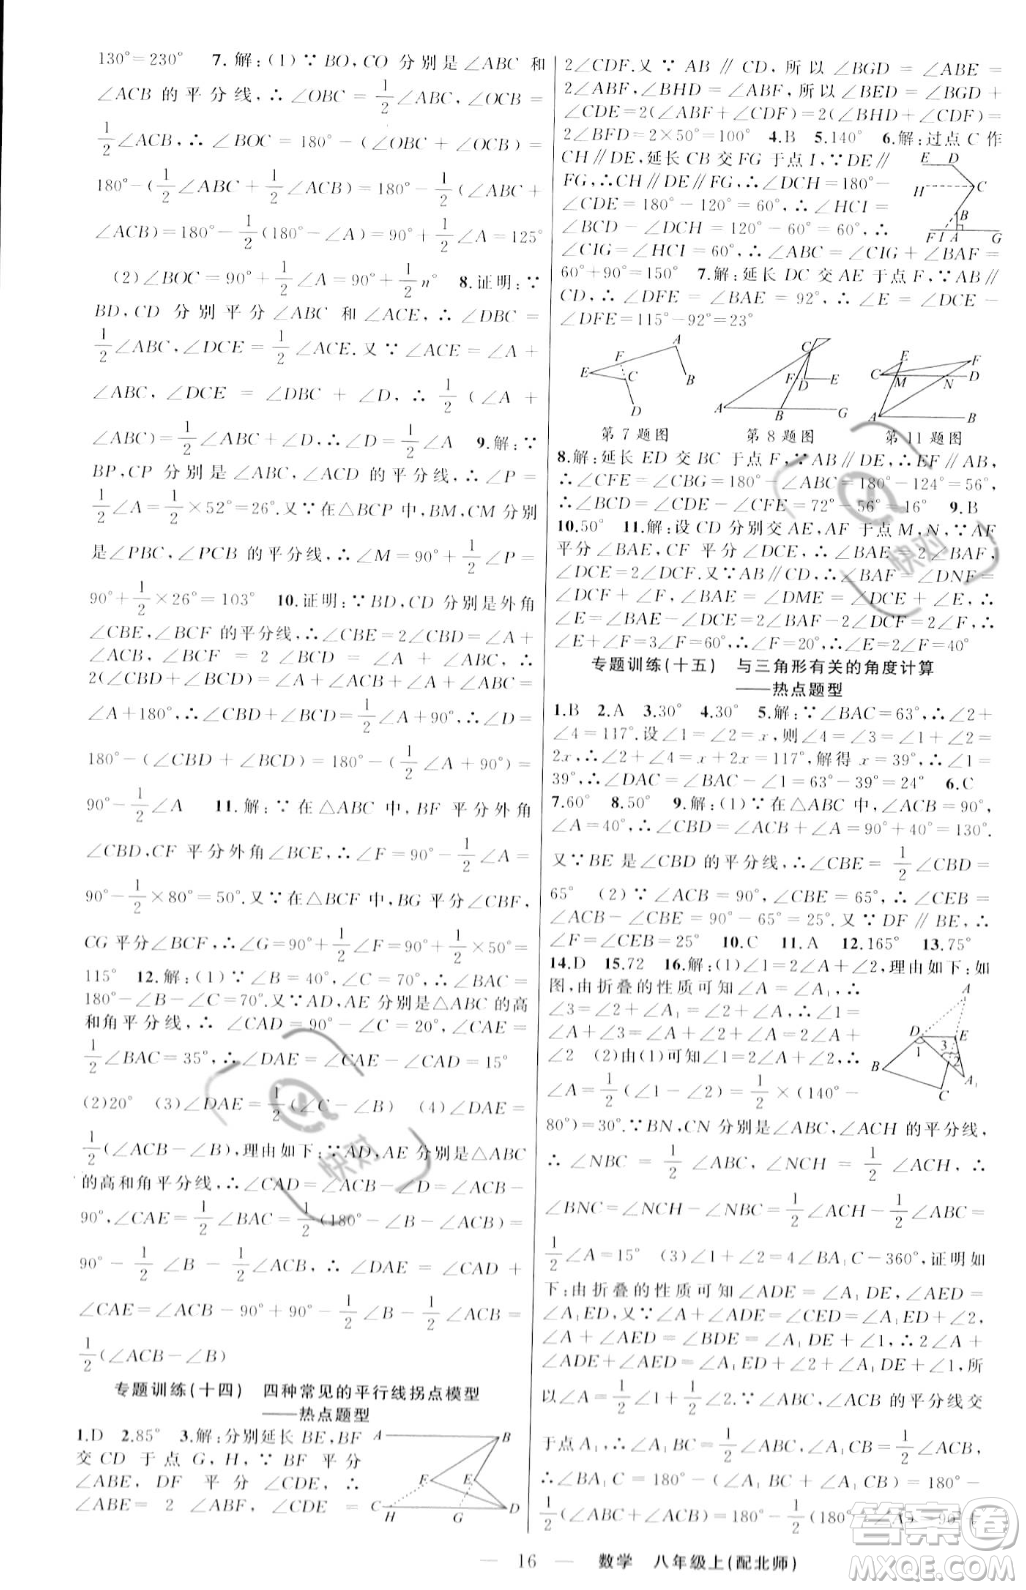 130°=230° 7.解:(1)∵BO,CO 分别是∠ABC 和
∠ACB 的平分线,∴∠OBC=1/2∠ABC,∠OCB=
1/2∠ACB,∴∠BOC=180°-(∠OBC+∠OCB)=
180°-(1/2∠ABC+1/2∠ACB)=180°-1/2(∠ABC+
∠ACB)=180°-1/2(180°-∠A)=90°+1/2∠A=125°
(2)∠BOC=90°+1/2∠A=90°+1/2n° 8.证明:∵
BD,CD 分别平分∠ABC 和∠ACE,∴∠DBC=
1/2∠ABC,∠DCE=1/2∠ACE.又∵∠ACE=∠A+
∠ABC,∠DCE=∠D+∠DBC,∴1/2(∠A+
∠ABC)=1/2∠ABC+∠D,∴∠D=1/2∠A 9.解:∵
BP,CP 分别是∠ABC,∠ACD 的平分线,∴∠P=
1/2∠A=1/2×52°=26°.又∵在△BCP 中,BM,CM 分别
是∠PBC,∠PCB 的平分线,∴∠M=90°+1/2∠P=
90°+1/2×26°=103° 10.证明:∵BD,CD 分别是外角
∠CBE,∠BCF 的平分线,∴∠CBE=2∠CBD=∠A+
∠ACB,∠BCF=2∠BCD=∠A+∠ABC,∴
2(∠CBD+∠BCD)=∠A+∠ACB+∠A+∠ABC=
∠A+180°,∴∠CBD+∠BCD=1/2∠A+90°,∴∠D=
180°-(∠CBD+∠BCD)=180°-(1/2∠A+90°)=
90°-1/2∠A 11.解:∵在△ABC 中,BF 平分外角
∠CBD,CF 平分外角∠BCE,∴∠F=90°-1/2∠A=
90°-1/2×80°=50°.又∵在△BCF 中,BG 平分∠CBF,
CG 平分∠BCF,∴∠G=90°+1/2∠F=90°+1/2×50°=
115° 12.解:(1)∵∠B=40°,∠C=70°,∴∠BAC=
180°-∠B-∠C=70°.又∵AD,AE 分别是△ABC 的高
和角平分线,∴∠CAD=90°-∠C=20°,∠CAE=
1/2∠BAC=35°,∴∠DAE=∠CAE-∠CAD=15°
(2)20° (3)∠DAE=1/2(∠C-∠B) (4)∠DAE=
1/2(∠ACB-∠B),理由如下:∵AD,AE 分别是△ABC
的高和角平分线,∴∠CAD=∠ACD-∠D=∠ACB-
90°,∠CAE=1/2∠BAC=1/2(180°-∠B-∠ACB)=
90°-1/2∠B-1/2∠ACB,∴∠DAE=∠CAD+
∠CAE=∠ACB-90°+90°-1/2∠B-1/2∠ACB=
1/2(∠ACB-∠B)
专题训练(十四) 四种常见的平行线拐点模型
——热点题型
1.D 2.85° 3.解:分别延长 BE,BF
交 CD 于点 G,H,∵BF 平分
∠ABE,DF 平分∠CDE,∴
∠ABE=2∠ABF,∠CDE=
A B
F E
C H G D
2∠CDF.又∵AB∥CD,所以∠BGD=∠ABE=
2∠ABF,∠BHD=∠ABF,所以∠BED=∠BGD+
∠CDE=2(∠ABF+∠CDF)=2(∠BHD+∠CDF)=
2∠BFD=2×50°=100° 4.B 5.140° 6.解:过点 C 作
CH∥DE,延长 CB 交 FG 于点 I,∵DE∥
FG,∴CH∥DE∥FG,∴∠DCH=180°-
∠CDE=180°-120°=60°,∴∠HCI=
∠DCB-∠DCH=120°-60°=60°,∴
∠CIG=∠HCI=60°,∴∠ABC=∠CIG+∠BAF=
60°+90°=150° 7.解:延长 DC 交 AE 于点 F,∵AB∥
CD,∴∠DFE=∠BAE=92°,∴∠E=∠DCE-
∠DFE=115°-92°=23°
E D
H C
B
F I A G
A F E C B D
第 7 题图
C F D E A B G
第 8 题图
E F C M N D A B
第 11 题图
8.解:延长 ED 交 BC 于点 F,∵AB∥DE,∴∠CFE=
∠CBG,∴∠CFE=∠CBG=180°-∠ABC=180°-124°=56°,
∴∠BCD=∠CDE-∠CFE=72°-56°=16° 9.B
10.50° 11.解:设 CD 分别交 AE,AF 于点 M,N,∵AF
平分∠BAE,CF 平分∠DCE,∴∠BAE=2∠BAF,
∠DCE=2∠DCF.又∵AB∥CD,∴∠BAF=∠DNF=
∠DCF+∠F,∠BAE=∠DME=∠DCE+∠E,∴
∠E=∠BAE-∠DCE=2∠BAF-2∠DCF=2∠F,∴
∠E+∠F=3∠F=60°,∴∠F=20°,∴∠E=2∠F=40°
专题训练(十五) 与三角形有关的角度计算
——热点题型
1.B 2.A 3.30° 4.30° 5.解:∵∠BAC=63°,∴∠2+
∠4=117°.设∠1=∠2=x,则∠4=∠3=∠1+∠2=
2x,∴∠2+∠4=x+2x=117°,解得 x=39°,∴∠1=
39°,∴∠DAC=∠BAC-∠1=63°-39°=24° 6.C
7.60° 8.50° 9.解:∵在△ABC 中,∠ACB=90°,
∠A=40°,∴∠CBD=∠ACB+∠A=90°+40°=130°.
又∵BE 是∠CBD 的平分线,∴∠CBE=1/2∠CBD=
65° (2)∵∠ACB=90°,∠CBE=65°,∴∠CEB=
∠ACB-∠CBE=90°-65°=25°.又∵DF∥BE,∴
∠F=∠CEB=25° 10.C 11.A 12.165° 13.75°
14.D 15.72 16.解:(1)∠1=2∠A+∠2,理由如下:如
图,由折叠的性质可知∠A=∠A₁,∴∠1=
∠A+∠3=∠A+∠2+∠A₁=2∠A+
∠2 (2)由(1)可知∠1=2∠A+∠2,∴
∠A=1/2(∠1-∠2)=1/2×(140°-
A
D E
1 3 2
B C A₁
80°)=30°.∵BN,CN 分别是∠ABC,∠ACH 的平分线,
∴∠NBC=1/2∠ABC,∠NCH=1/2∠ACH,∴
∠BNC=∠NCH-∠NBC=1/2∠ACH-1/2∠ABC=
1/2∠A=15° (3)∠1+∠2=4∠BA₁C-360°,证明如
下:由折叠的性质可知∠ADE=∠A₁DE,∠AED=
∠A₁ED,又∵∠AED=∠CED=∠A₁ED+∠2,
∠ADE=∠BDE=∠A₁DE+∠1,∴∠1+∠2=∠AED
-∠A₁ED+∠ADE-∠A₁DE,∴∠1+∠2=∠A₁,所
以∠A=1/2∠1+1/2∠2.∵∠B 与∠C 的平分线交
于点 A₁,∴∠A₁BC=1/2∠ABC,∠A₁CB=1/2∠ACB,
∴∠BA₁C=180°-(∠A₁BC+∠A₁CB)=180°-
1/2(∠ABC+∠ACB)=180°-1/2(180°-∠A)=90°+
16 数学 八年级上(配北师)
快对
快对
答案圈
MXQE.COM